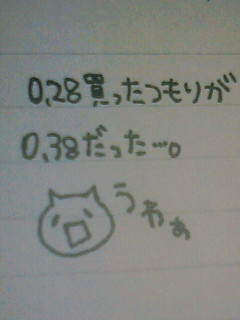 0.28買ったつもりが
0.38だった…。
うわぁ